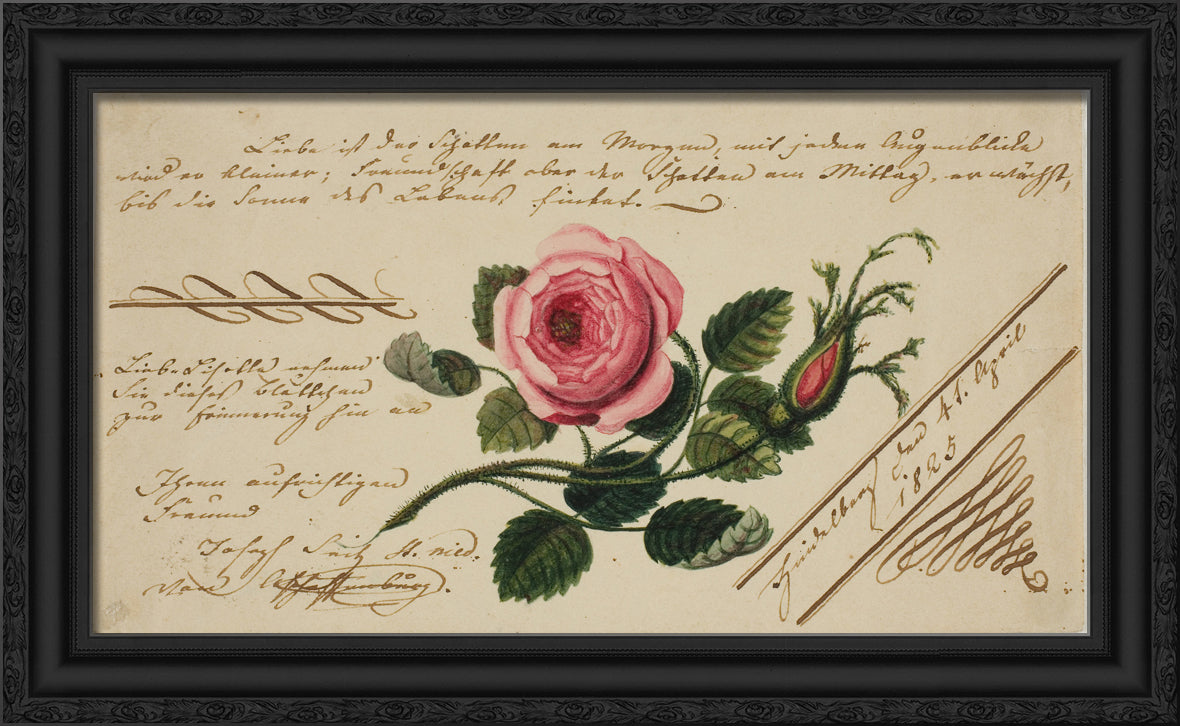 Liebe ist der Schatten am Morgen, mit jedem Augenblicke
wird er kleiner; Freundschaft aber der Schatten am Mittag, er wächst,
bis die Sonne des Lebens sinket.
Liebe Lisette nehmen
Sie dieses Blättchen
zur Erinnerung hin an
Ihren aufrichtigen
Freund
Joseph Fritz
von Aschaffenburg.
Heidelberg den 4t. April
1825